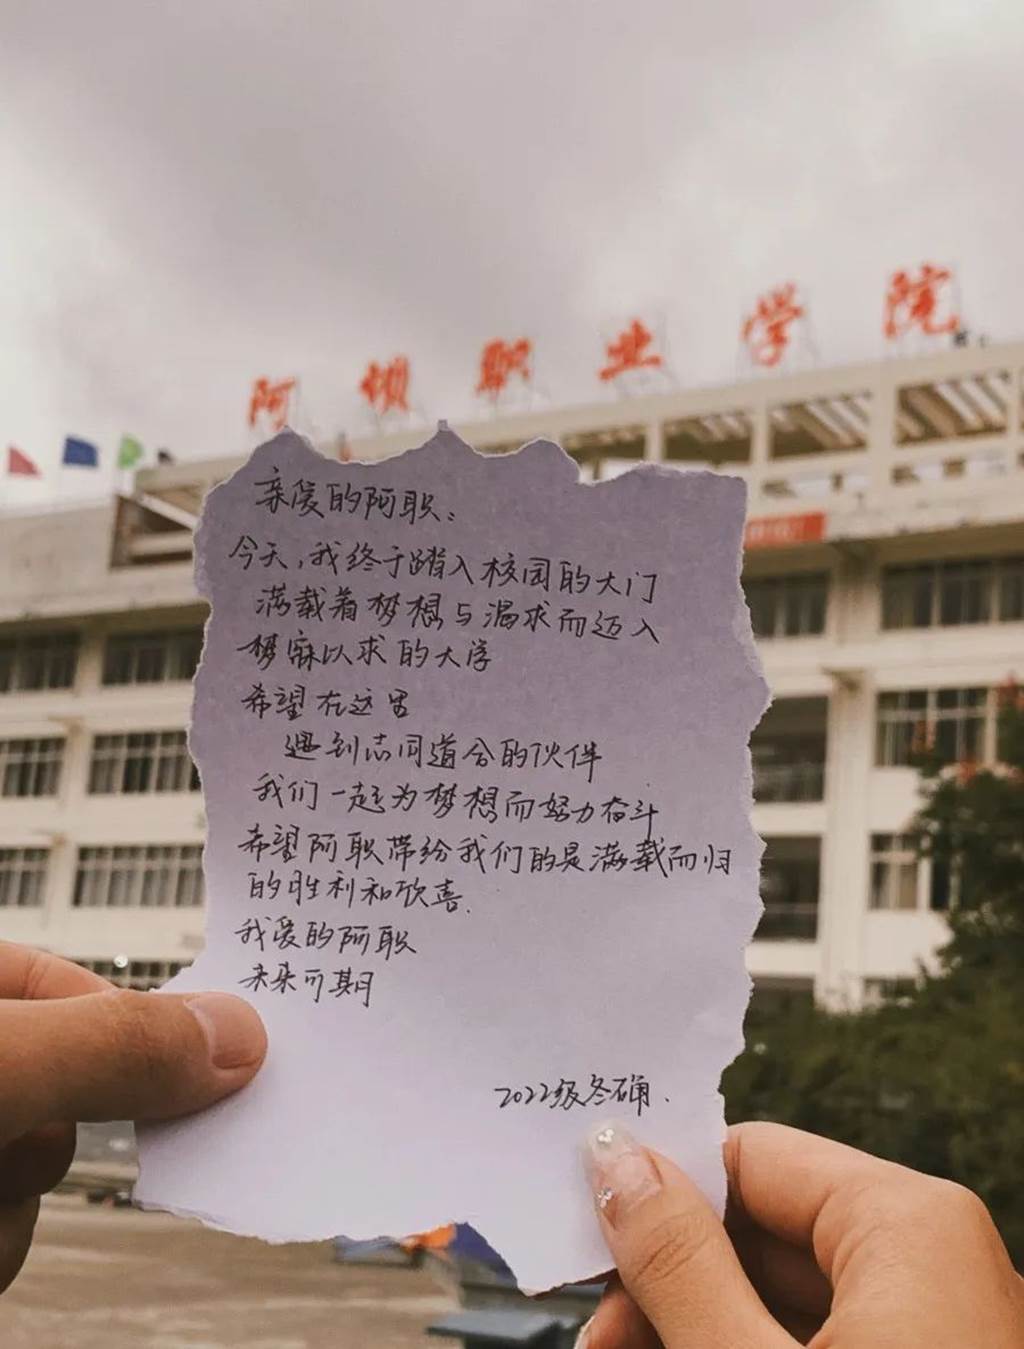 阿坝职业学院
亲爱的阿职:
今天,我终于踏入校园的大门
满载着梦想与渴求而迈入
梦寐以求的大学
希望在这里
遇到志同道合的伙伴
我们一起为梦想而努力奋斗
希望阿职带给我们的是满载而归
的胜利和欣喜.
我爱的阿职
未来可期
2022级冬确.